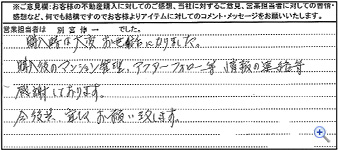 ※ご意見欄:お客様の不動産購入に対してのご感想、当社に対するご意見、営業担当者に対しての苦情・
感想など、何でも結構ですのでお客様よりアイテムに対してのコメント・メッセージをお願いいたします。
営業担当者は 別宮修一 でした。
購入時は大変お世話になりました。
購入後のマンション管理、アフターフォロー等 情報の連絡等
感謝しております。
今後共、宜しくお願い致します。